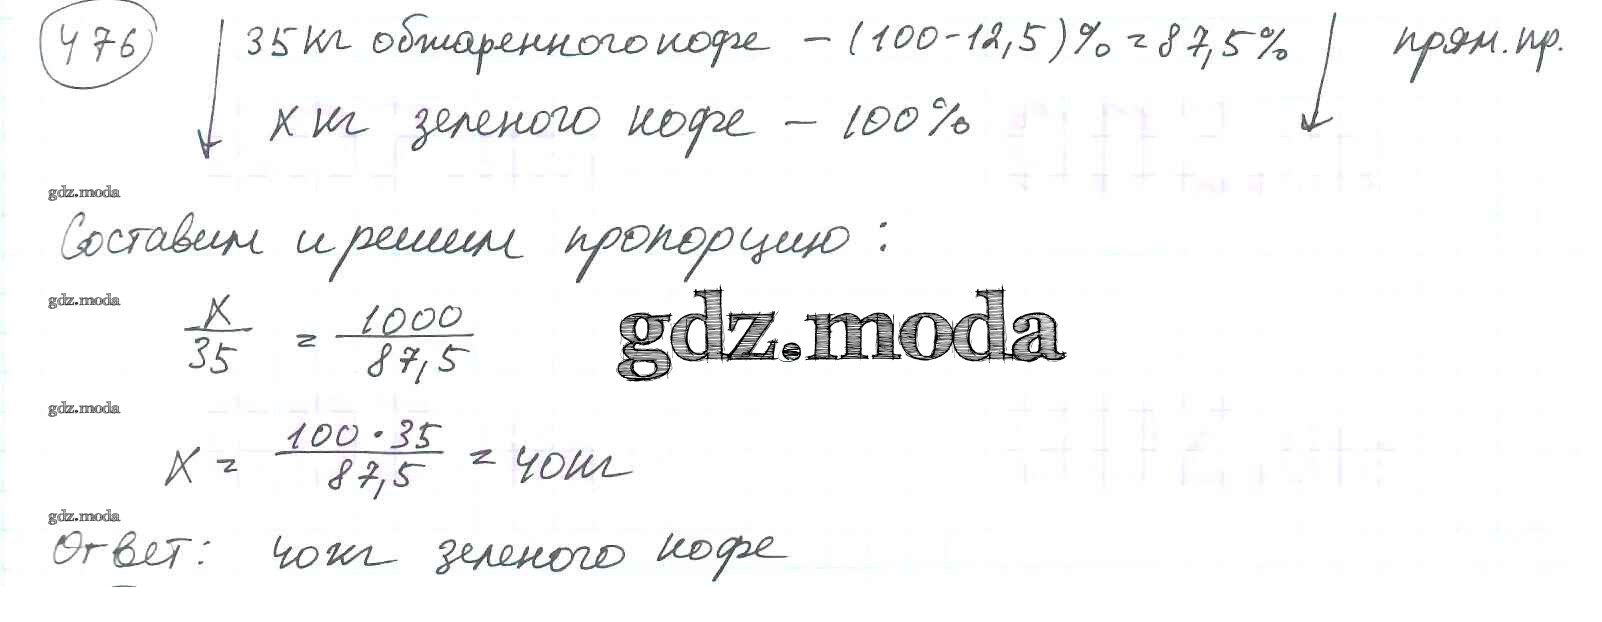 476 35 кг обжаренного кофе – (100-12,5)% = 87,5% прям. пр.
х кг зеленого кофе – 100%
gdz.moda
Составим и решим пропорцию:
gdz.moda
х/35 = 1000/87,5
gdz.moda
gdz.moda
х = 100·35/87,5 = 40кг
gdz.moda
Ответ: 40 кг зеленого кофе